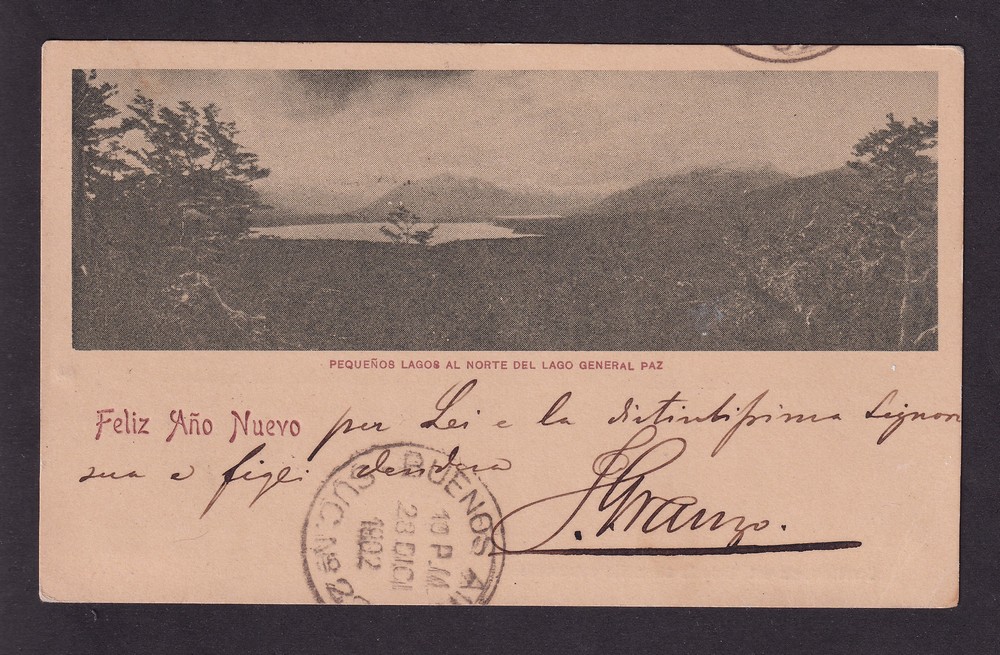 PEQUEÑOS LAGOS AL NORTE DEL LAGO GENERAL PAZ
Feliz Año Nuevo per Lei e la distintissima Signora
sua e figli desidera
J. Granzo.
BUENOS AI
SUC. Nº 2
10 P.M.
28 DICI
1902